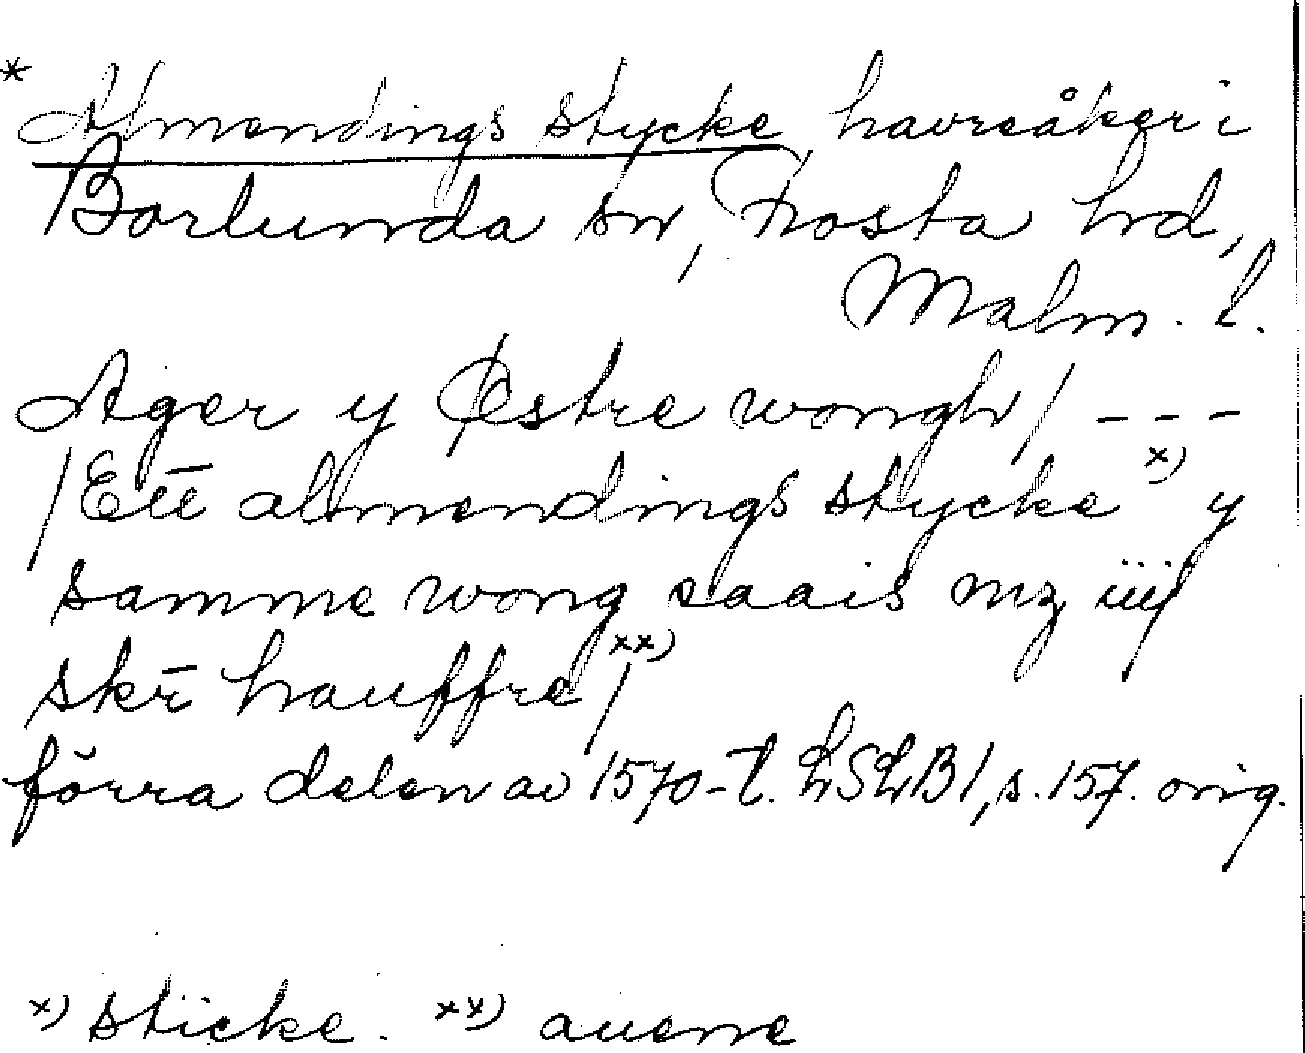 * Almendings stycke, havreåker i
Borlunda sn, Frosta hd,
Malm. l.
Ager y Østre wongh/ - - -
/Ett̄ almendings stycke x) y
samme wong saais mz iiij
skr̄ hauffre/ xx)
förra delen av 1570-t. LSLB1, s. 157. orig.
x) sticke. xx) auene